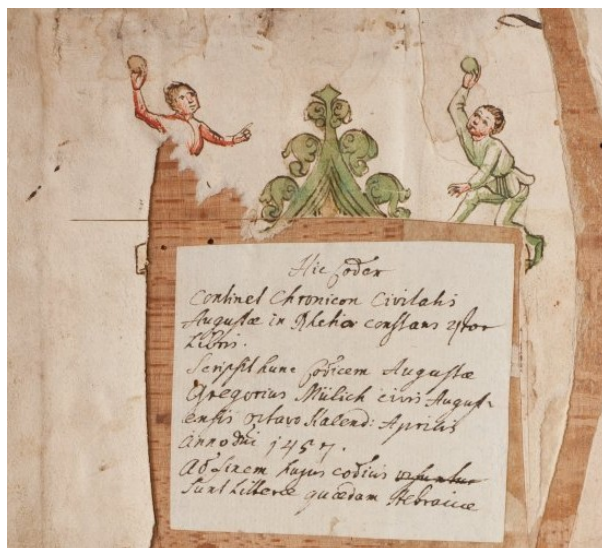 Hic Codex
Continet Chronicon Civitatis
Augustæ in Rhetia constans 4tor
Libris.
Scripsit hunc Codicem Augustæ
Gregorius Mülich civis August-
ensis octavo Kalend: Aprilis
Anno dni 1457.
Ad finem hujus codicis
Sunt Litteræ quædam Hebraicæ